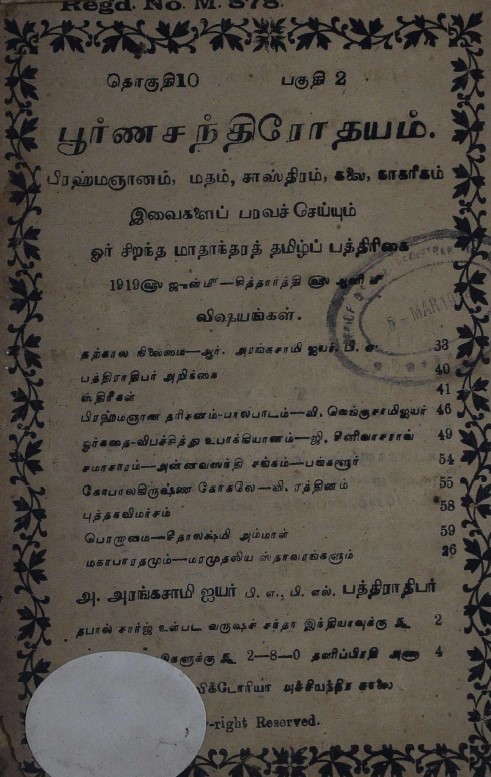 Regd. No. M. 878.
தொகுதி 10 பகுதி 2
பூர்ணசந்திரோதயம்.
பிரஹ்மஞானம், மதம், சாஸ்திரம், கலை, நாகரிகம்
இவைகளைப் பரவச் செய்யும்
ஓர் சிறந்த மாதாந்தரத் தமிழ்ப் பத்திரிகை
1919௵ ஜுன்௴—சித்தார்த்தி ௵ ஆனி
விஷயங்கள்.
தற்கால நிலைமை—ஆர். அரங்கசாமி ஐயர், பி. ஏ. 33
பத்திராதிபர் அறிக்கை 40
ஸ்திரீகள் 41
பிரஹ்மஞான தரிசனம்-பாலபாடம்—வி. வெங்குசாமிஐயர் 46
ஓர்கதை-விபச்சித்து உபாக்கியானம்—ஜி. சீனிவாசராவ் 49
சமாசாரம்—அன்னவஸந்தி சங்கம்—பங்களூர் 54
கோபாலகிருஷ்ண கோகலே—வி. ரத்தினம் 55
புத்தகவிமர்சம் 58
பொறுமை—சீதாலக்ஷ்மி அம்மாள் 59
மகாபாரதமும்—மரமுதலிய ஸ்தாவரங்களும் 26
அ. அரங்கசாமி ஐயர் பி. ஏ., பி. எல். பத்திராதிபர்
தபால் சார்ஜ் உள்பட வருஷச் சந்தா இந்தியாவுக்கு ரூ 2
களுக்கு ரூ 2—8—0 தனிப்பிரதி அணா 4
விக்டோரியா அச்சியந்திர சாலை
-right Reserved.
5 - MAR 19